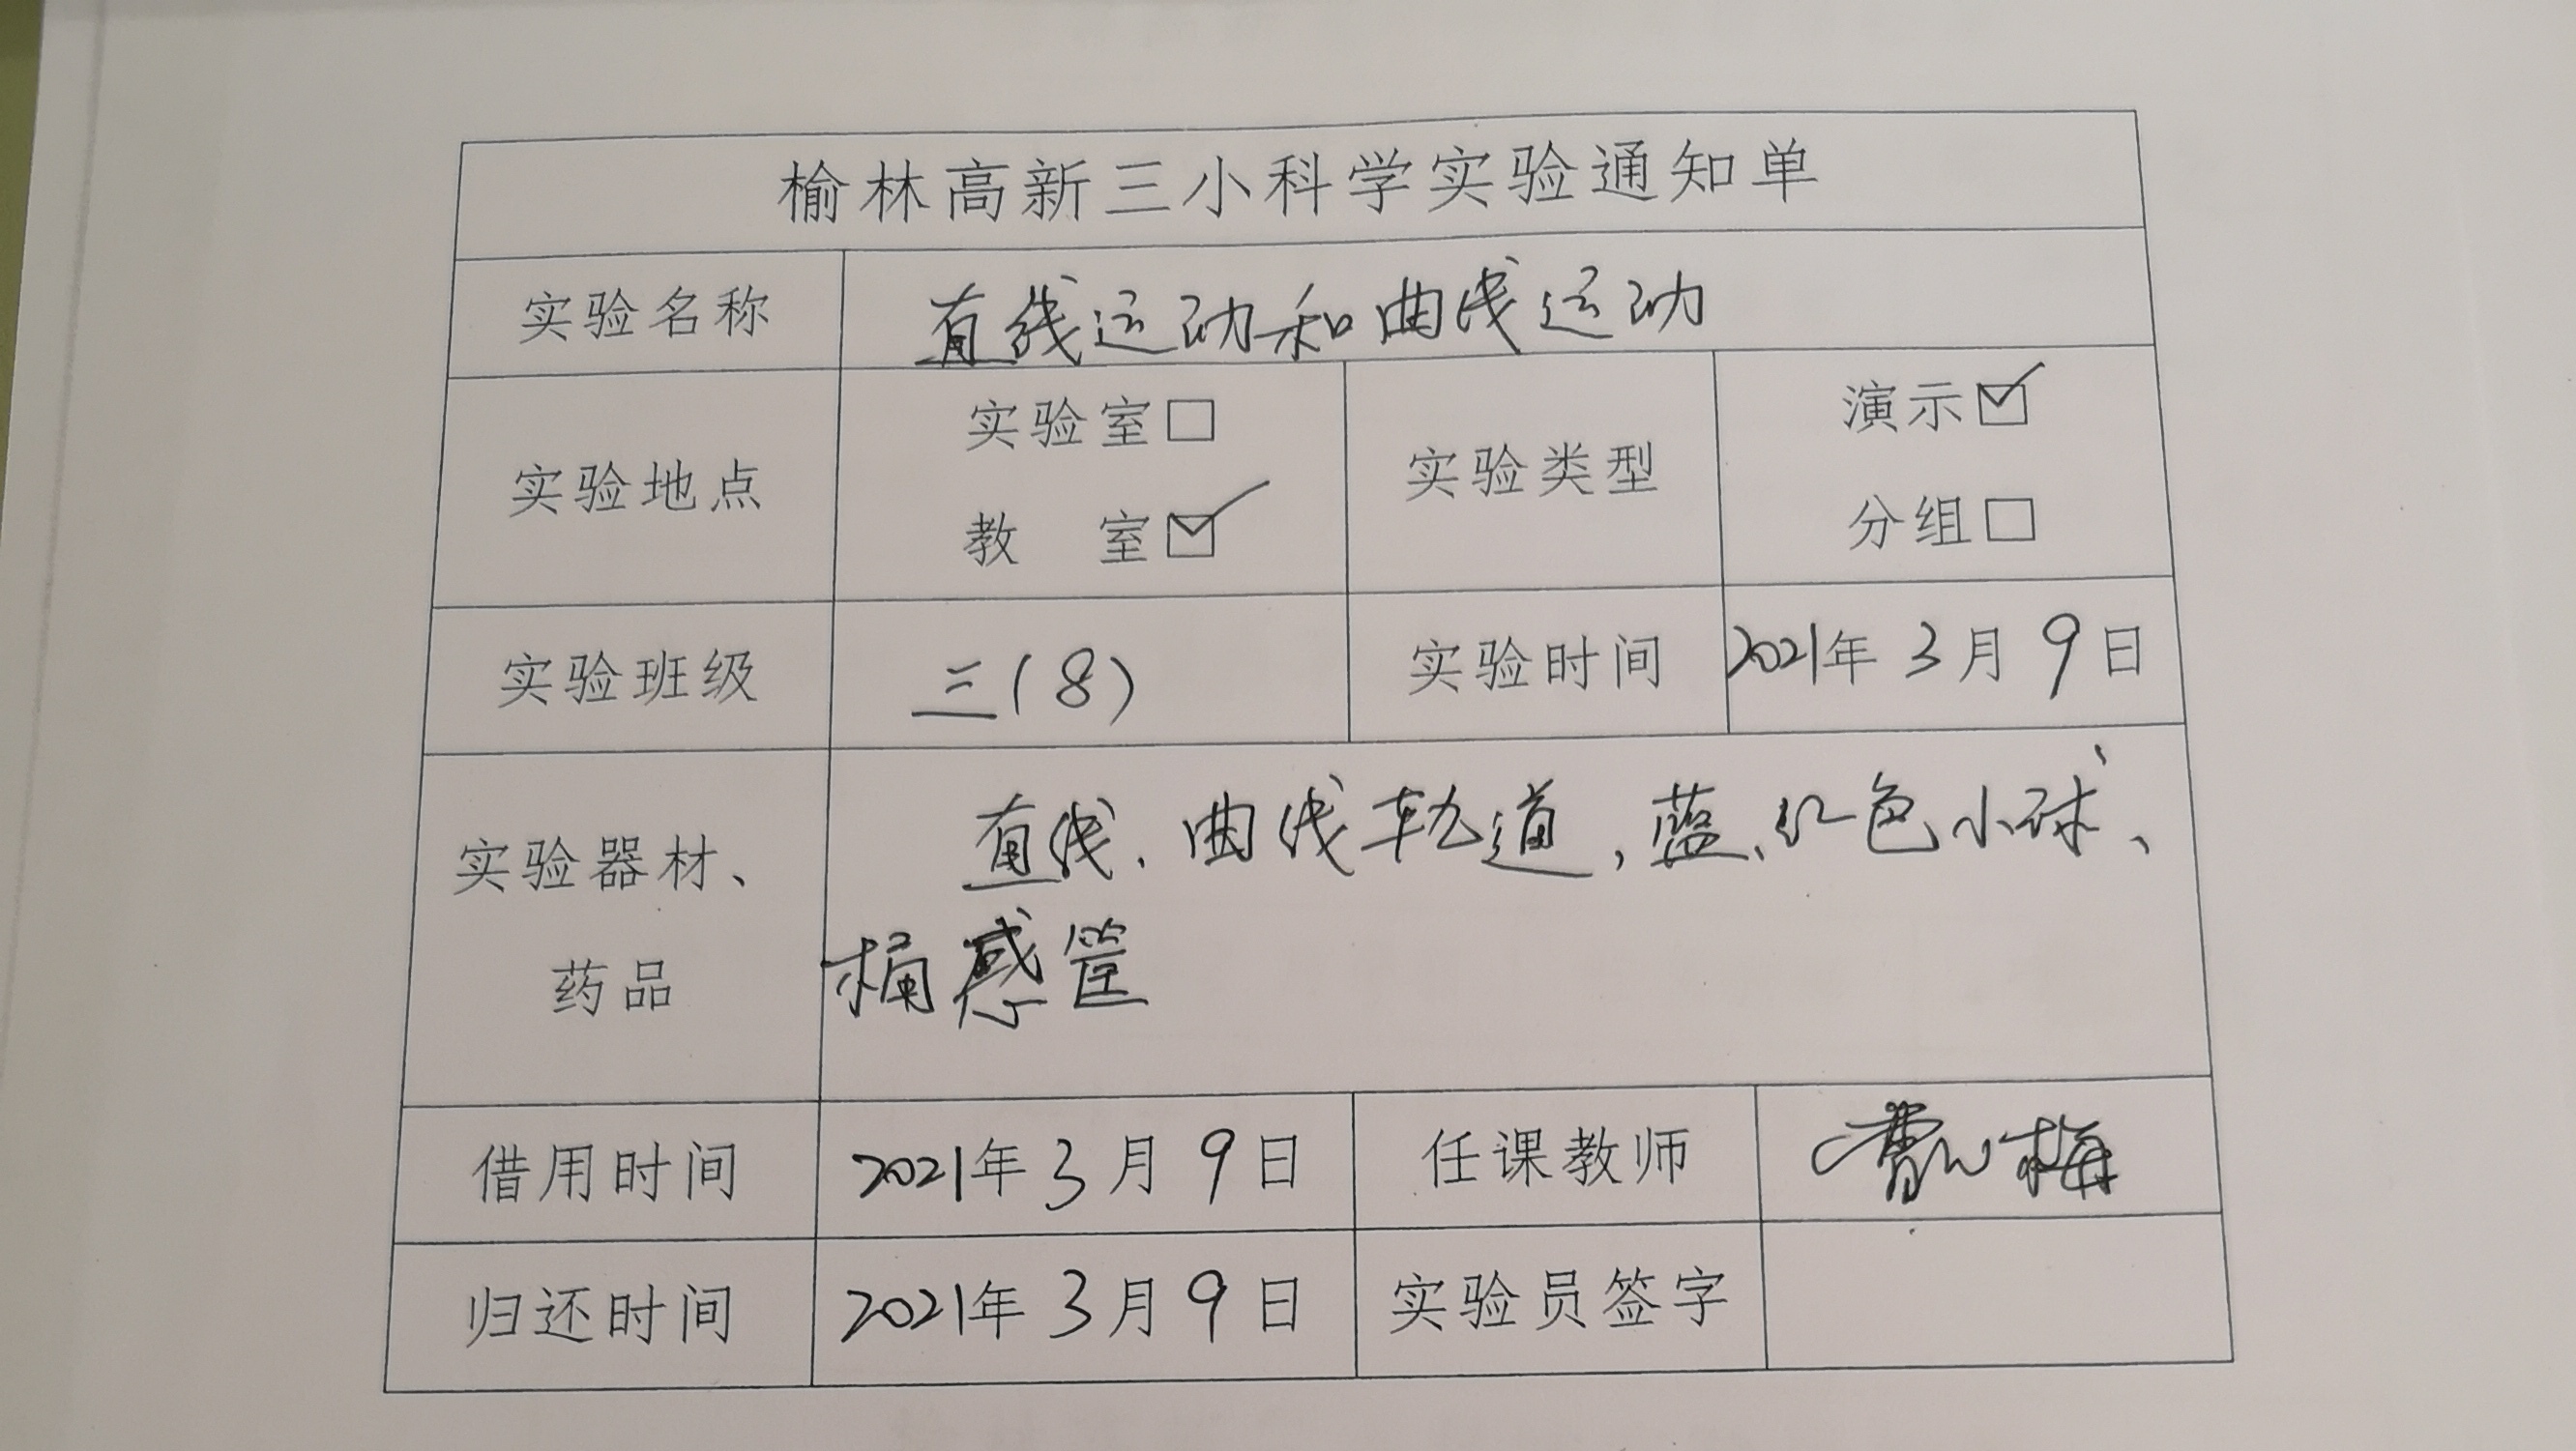 榆林高新三小科学实验通知单
实验名称 直线运动和曲线运动
实验地点 实验室□ 教 室☑ 实验类型 演示☑ 分组□
实验班级 三(8) 实验时间 2021年3月9日
实验器材、药品 直线、曲线轨道,蓝、红色小球、
桶 筐
借用时间 2021年3月9日 任课教师 梅
归还时间 2021年3月9日 实验员签字